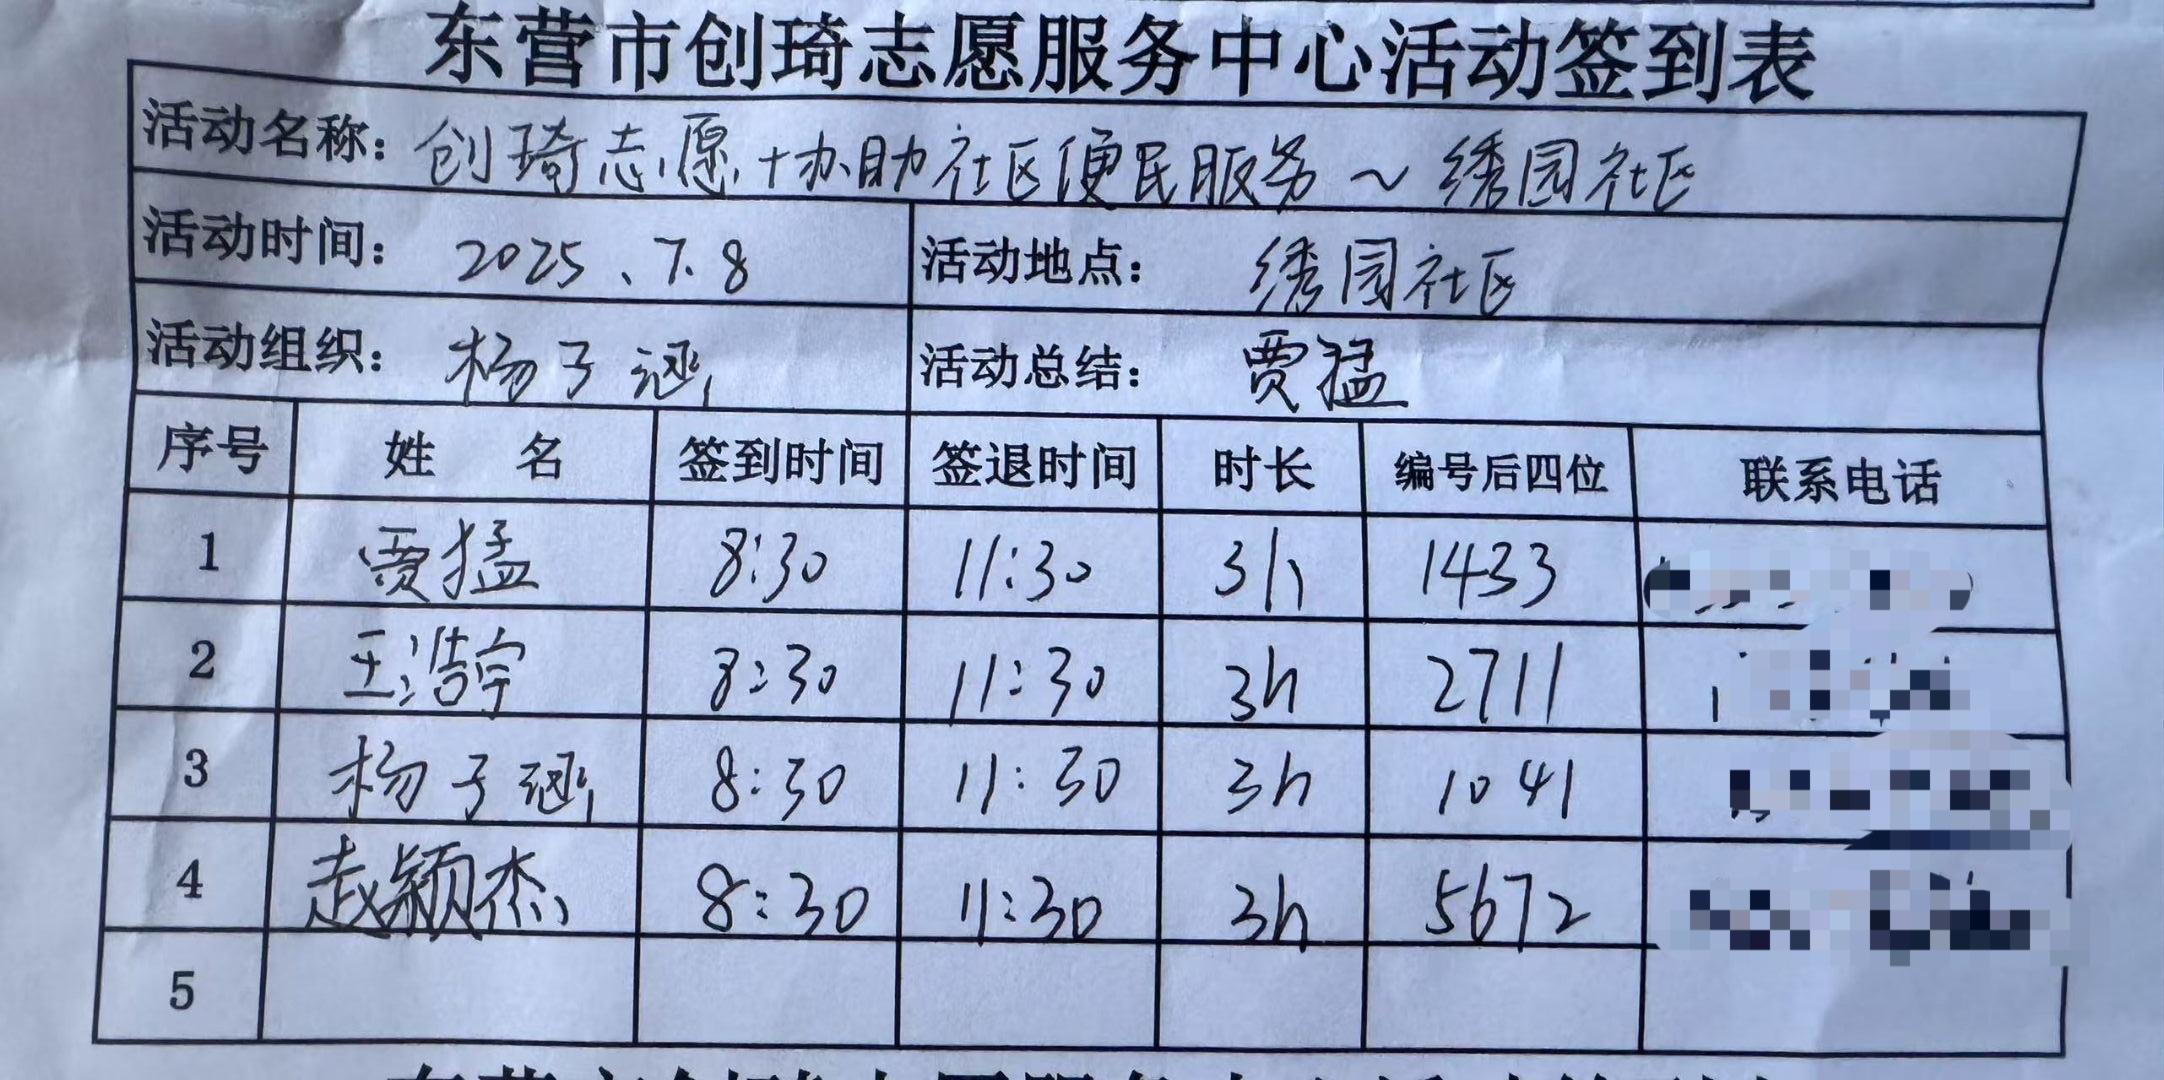 东营市创琦志愿服务中心活动签到表
活动名称：创琦志愿+协助社区便民服务～绣园社区
活动时间：2025、7.8 活动地点：绣园社区
活动组织：杨子涵 活动总结：贾猛
序号 姓名 签到时间 签退时间 时长 编号后四位 联系电话
1 贾猛 8:30 11:30 3h 1433
2 王浩宇 8:30 11:30 3h 2711
3 杨子涵 8:30 11:30 3h 1041
4 赵颖杰 8:30 11:30 3h 5672
5